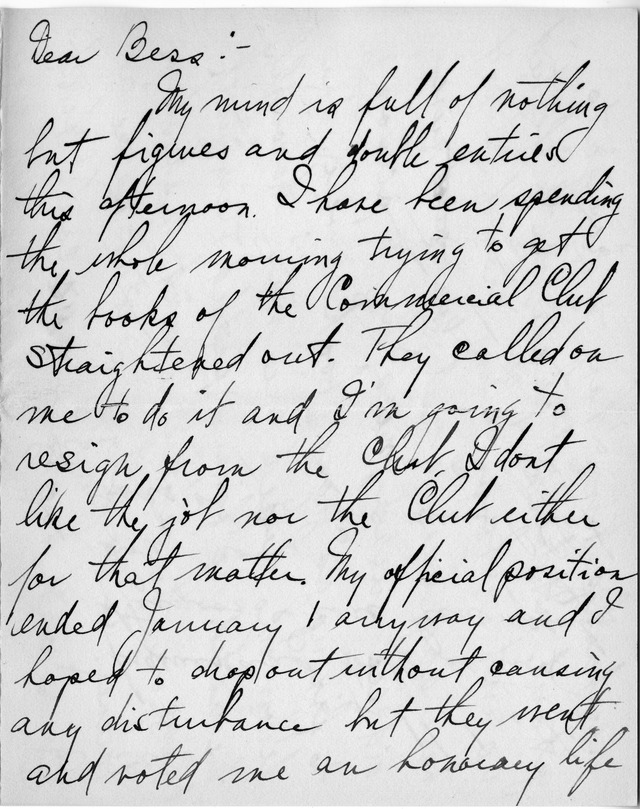 Dear Bess :-
My mind is full of nothing
but figures and double entries
this afternoon. I have been spending
the whole morning trying to get
the books of the Commercial Club
straightened out. They called on
me to do it and I'm going to
resign from the Club. I dont
like the job nor the Club either
for that matter. My official position
ended January 1 anyway and I
hoped to drop out without causing
any disturbance but they went
and voted me an honorary life